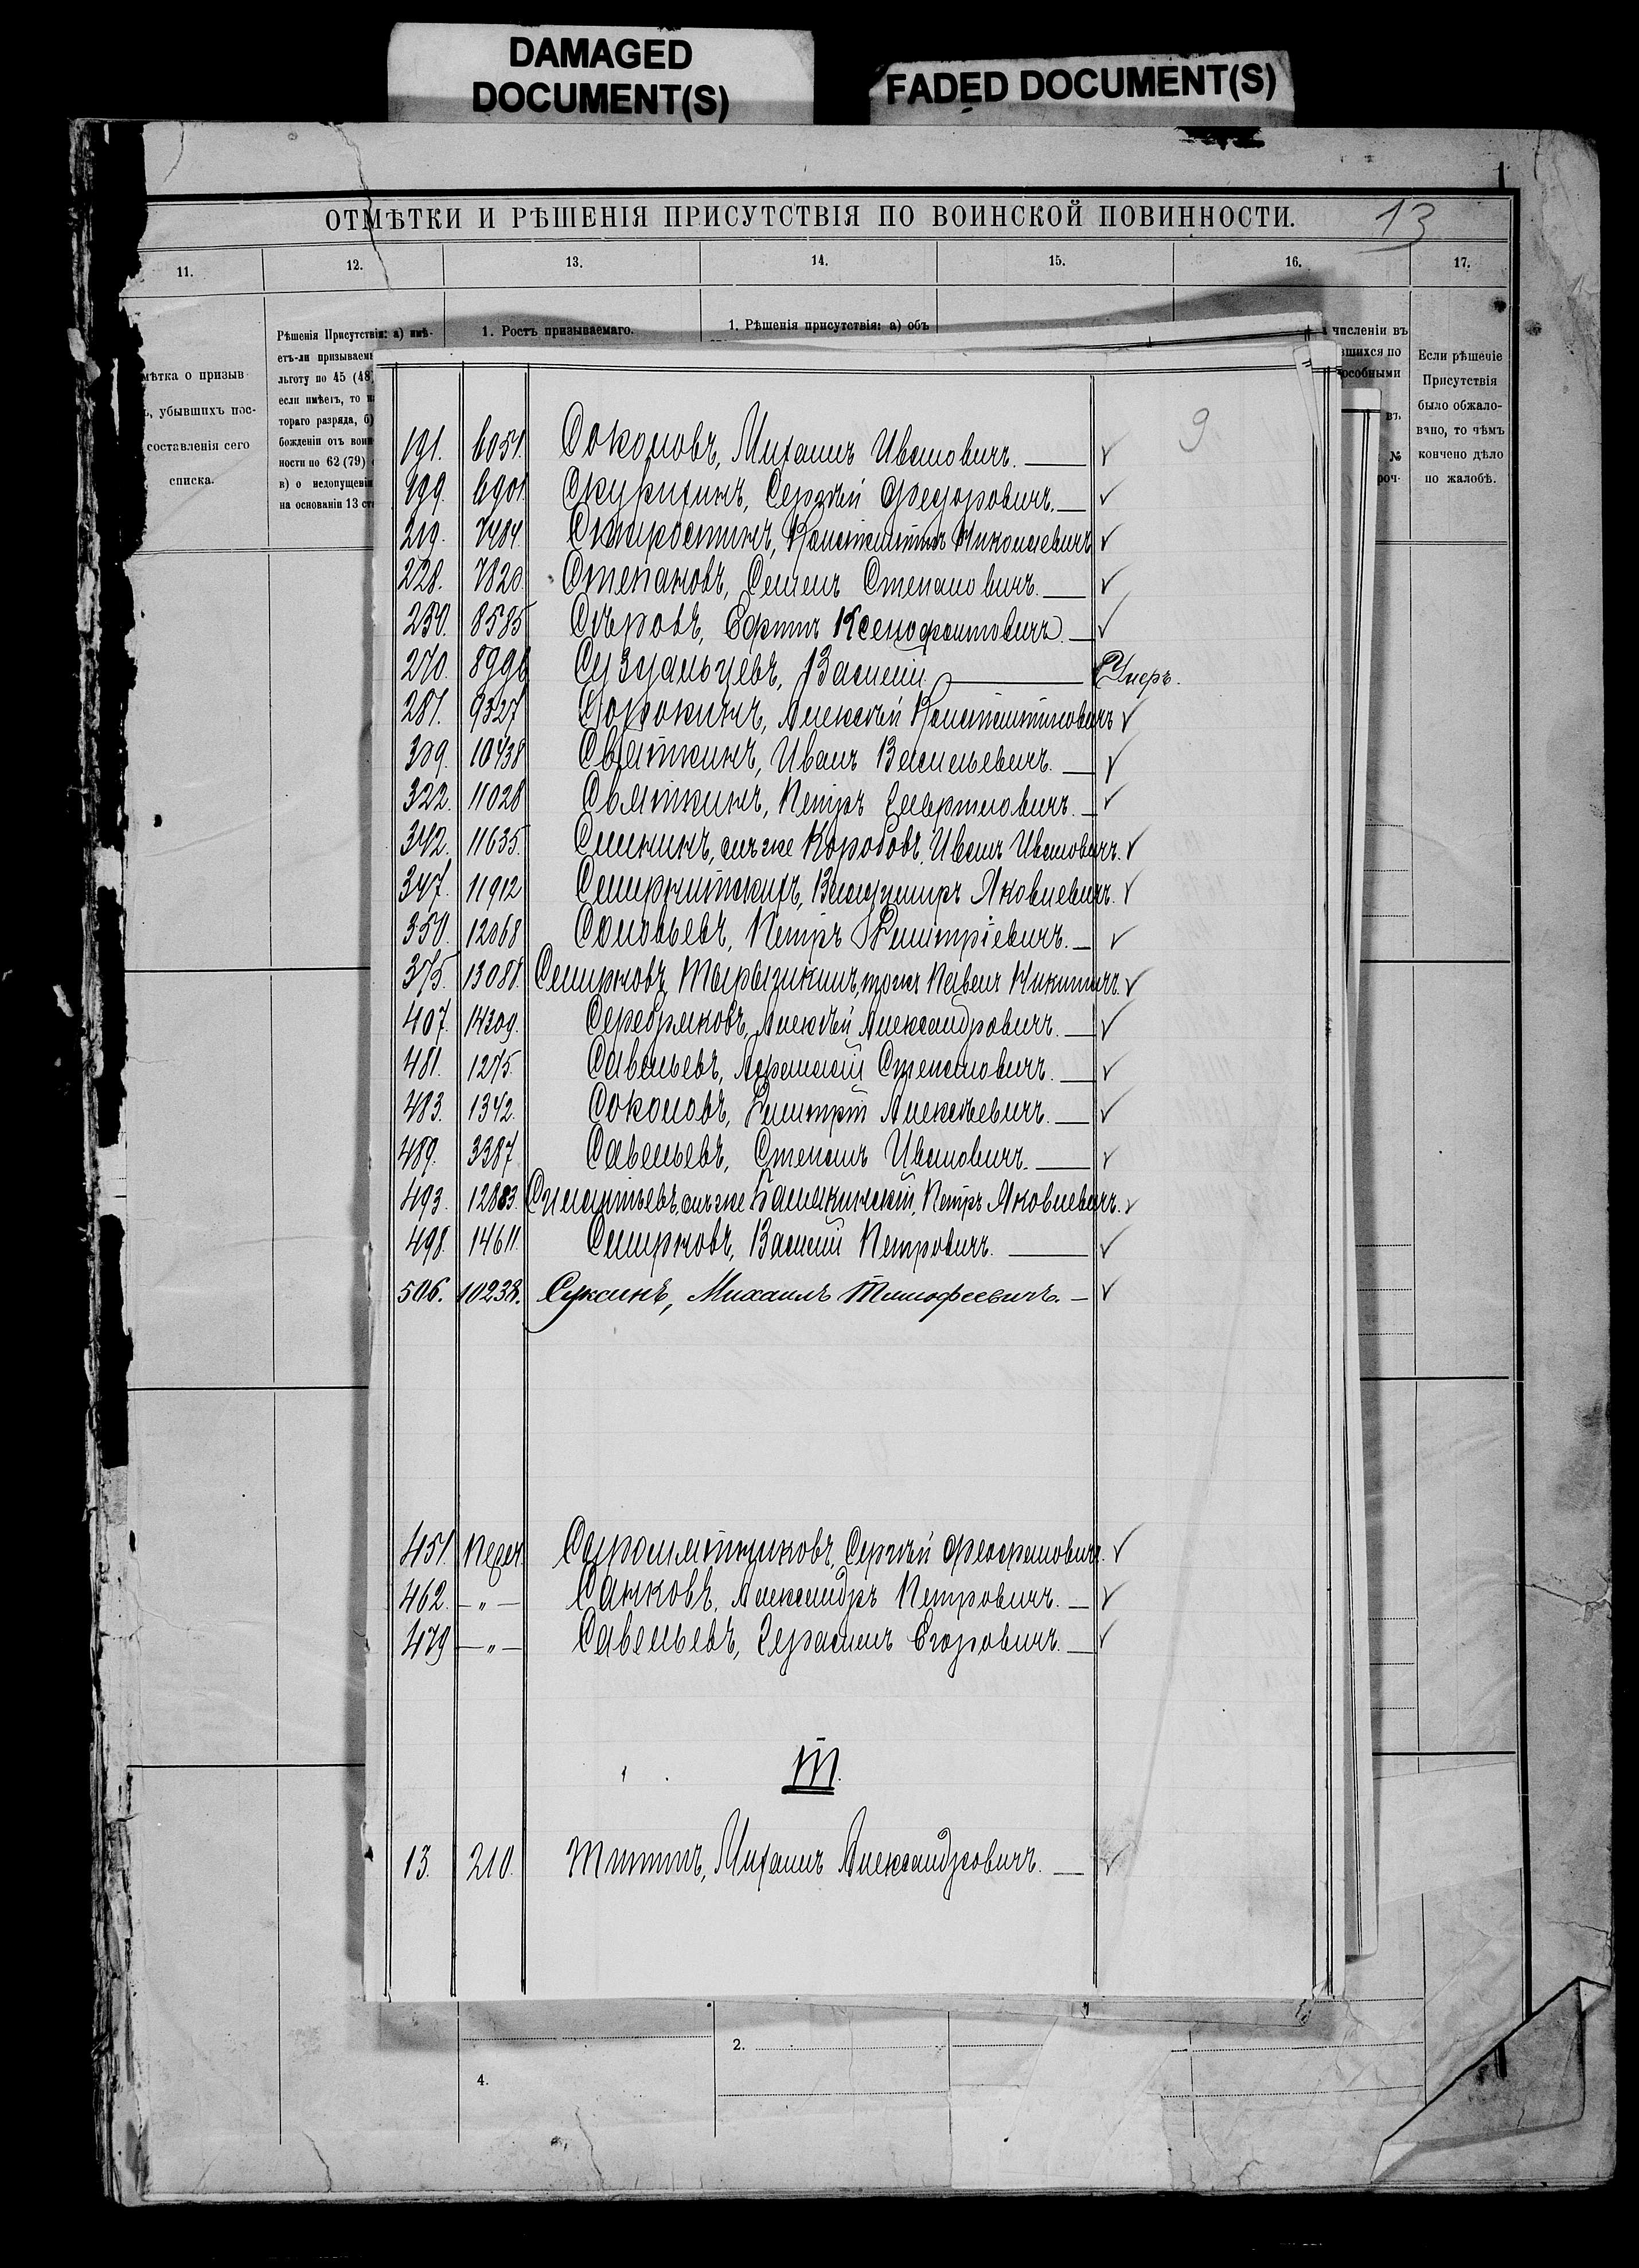 DAMAGED
DOCUMENT(S)
FADED DOCUMENT(S)
ОТМѢТКИ И РѢШЕНІЯ ПРИСУТСТВІЯ ПО ВОИНСКОЙ ПОВИННОСТИ. 13
11. 12. 13. 14. 15. 16. 17.
мѣтка о призыв
ъ, убывшихъ пос-
составленія сего
списка.
Рѣшенія Присутствія: а) имѣ-
етъ-ли призываемы
льготу по 45 (48)
если имѣетъ, то
тораго разряда, б)
божденіи отъ воин
ности по 62 (79)
в) о недопущеніи
на основаніи 13 ст
1. Ростъ призываемаго.
1. Рѣшенія присутствія: а) объ
численіи въ
вшихся по
особными
въ
№
роч-
Если рѣшеніе
Присутствія
было обжало-
вано, то чѣмъ
кончено дѣло
по жалобѣ.
9
191. 6051. Соколовъ, Михаилъ Ивановичъ. — ✓
199. 6901. Скурихинъ, Сергѣй Федоровичъ. — ✓
219. 7484. Старостинъ, Константинъ Николаевичъ ✓
228. 7820. Степановъ, Семенъ Степановичъ. — ✓
250. 8585 Сѣровъ, Ефимъ Ксенофонтовичъ. — ✓
270. 8996 Суздальцевъ, Василій — Умеръ.
281. 9327 Сорокинъ, Алексѣй Константиновичъ ✓
309. 10438 Святкинъ, Иванъ Васильевичъ. — ✓
322. 11028 Святкинъ, Петръ Смарагдовичъ. — ✓
342. 11635. Синкинъ, онъ же Коробовъ, Иванъ Ивановичъ. ✓
347. 11912 Смирнитскихъ, Владиміръ Яковлевичъ. ✓
350. 12068 Соловьевъ, Петръ Дмитріевичъ. — ✓
375. 13088. Смирновъ, Тырышкинъ, тожъ Павелъ Никитичъ. ✓
407. 14309. Серебряковъ, Алексѣй Александровичъ. — ✓
481. 1275. Савельевъ, Афанасій Степановичъ. — ✓
483. 1342. Соколовъ, Дмитрій Алексѣевичъ. — ✓
489. 3387. Савельевъ, Степанъ Ивановичъ. — ✓
493. 12883. онъ же Балыкинскій, Петръ Яковлевичъ. ✓
498. 14611. Смирновъ, Василій Петровичъ. — ✓
506. 10238. Суксинъ, Михаилъ Тимофеевичъ. — ✓
451. Перех. Сыромятниковъ, Сергѣй Феофановичъ. ✓
462. —„— Санковъ, Александръ Петровичъ. — ✓
479 —„— Савельевъ, Герасимъ Егоровичъ. — ✓
Т.
13. 210. Титтъ, Михаилъ Александровичъ. — ✓
2.
4.